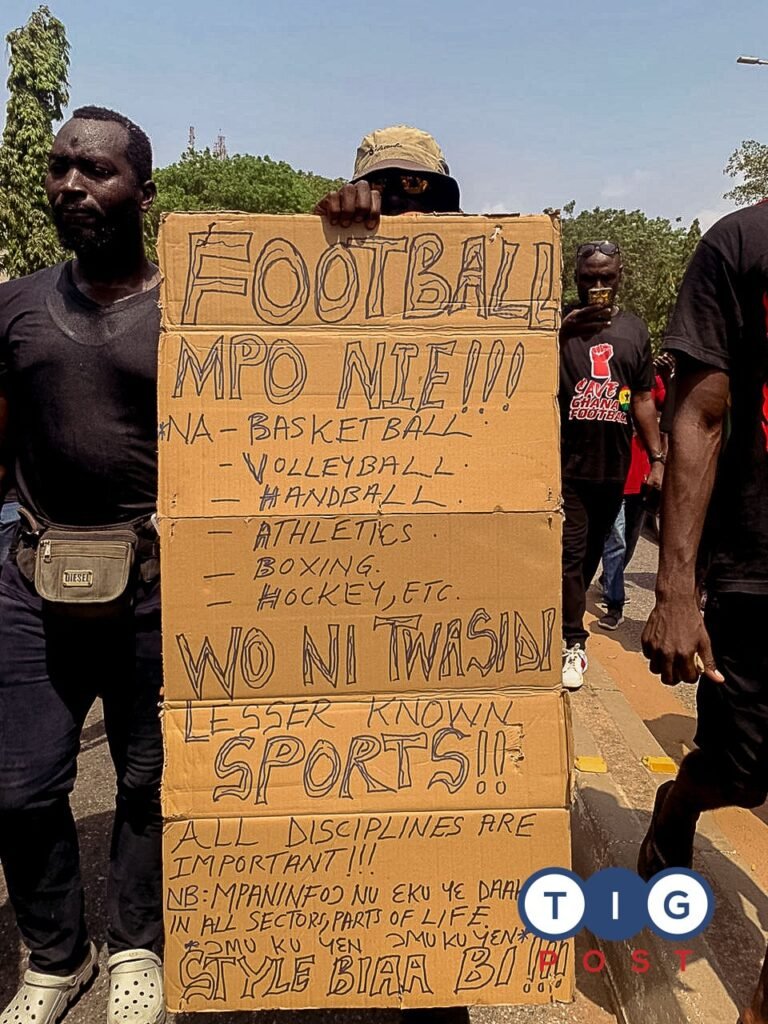 FOOTBALL
MPO NIE!!!
*NA - BASKETBALL
- VOLLEYBALL.
- HANDBALL.
- ATHLETICS.
- BOXING.
- HOCKEY, ETC.
WO NI TWASIDI
LESSER KNOWN
SPORTS!!
ALL DISCIPLINES ARE
IMPORTANT!!!
NB: MPANINFOƆ NU ƐKU YE
IN ALL SECTORS, PARTS OF LIFE.
*ƆMU KU YEN ƆMU KU YEN*
STYLE BIAA BI!!!!
SAVE
GHANA
FOOTBALL
DIESEL
TIG
POST